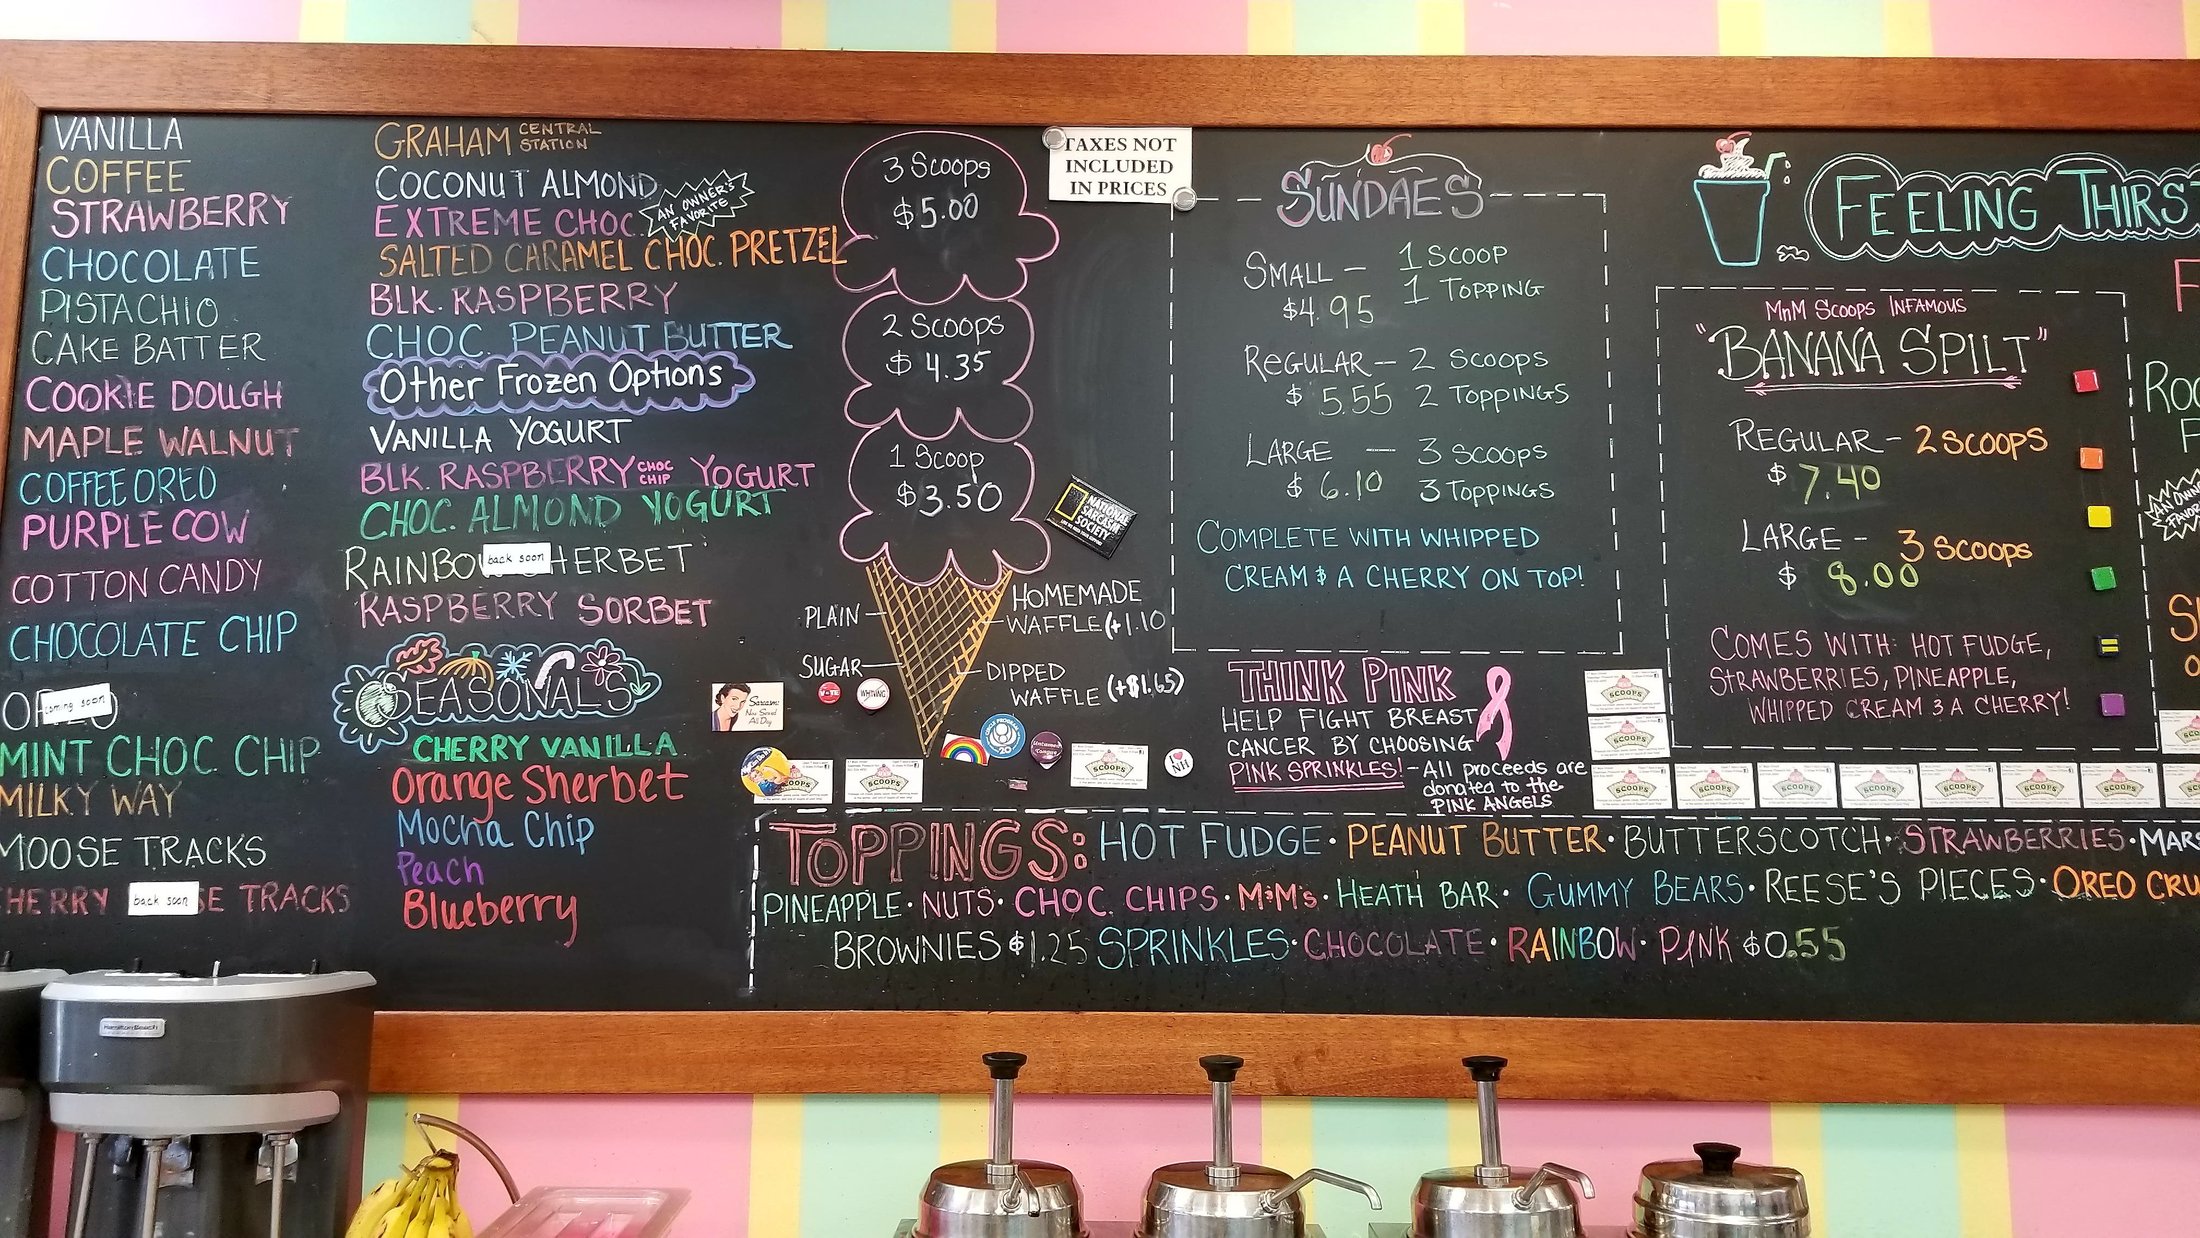 VANILLA
COFFEE
STRAWBERRY
CHOCOLATE
PISTACHIO
CAKE BATTER
COOKIE DOUGH
MAPLE WALNUT
COFFEE OREO
PURPLE COW
COTTON CANDY
CHOCOLATE CHIP
coming soon
MINT CHOC. CHIP
MILKY WAY
MOOSE TRACKS
HERRY back soon SE TRACKS
GRAHAM CENTRAL STATION
COCONUT ALMOND
EXTREME CHOC.
AN OWNER'S FAVORITE
SALTED CARAMEL CHOC. PRETZEL
BLK. RASPBERRY
CHOC. PEANUT BUTTER
Other Frozen Options
VANILLA YOGURT
BLK. RASPBERRY CHOC CHIP YOGURT
CHOC. ALMOND YOGURT
RAINBO back soon HERBET
RASPBERRY SORBET
SEASONALS
CHERRY VANILLA
Orange Sherbet
Mocha Chip
Peach
Blueberry
3 Scoops
$5.00
2 Scoops
$4.35
1 Scoop
$3.50
PLAIN
SUGAR
HOMEMADE
WAFFLE (+1.10
DIPPED
WAFFLE (+$1.65)
TAXES NOT
INCLUDED
IN PRICES
NATIONAL
SARCASM
SOCIETY
Sarcasm:
Now Served
All Day
VOTE
WHINING
I NH
SCOOPS
SCOOPS
SCOOPS
SUNDAES
SMALL — 1 SCOOP
$4.95 1 TOPPING
REGULAR — 2 SCOOPS
$5.55 2 TOPPINGS
LARGE — 3 SCOOPS
$6.10 3 TOPPINGS
COMPLETE WITH WHIPPED
CREAM & A CHERRY ON TOP!
THINK PINK
HELP FIGHT BREAST
CANCER BY CHOOSING
PINK SPRINKLES! - All proceeds are
donated to the
PINK ANGELS
SCOOPS
SCOOPS
SCOOPS
SCOOPS
SCOOPS
SCOOPS
SCOOPS
SCOOPS
SCOOPS
FEELING THIRS
MnM SCOOPS INFAMOUS
"BANANA SPILT"
REGULAR - 2 SCOOPS
$7.40
LARGE - 3 SCOOPS
$8.00
COMES WITH: HOT FUDGE,
STRAWBERRIES, PINEAPPLE,
WHIPPED CREAM & A CHERRY!
AN OWN
FAVOR
TOPPINGS: HOT FUDGE · PEANUT BUTTER · BUTTERSCOTCH · STRAWBERRIES · MARS
PINEAPPLE · NUTS · CHOC. CHIPS · M&M's · HEATH BAR · GUMMY BEARS · REESE'S PIECES · OREO CRU
BROWNIES $1.25 SPRINKLES · CHOCOLATE · RAINBOW · PINK $0.55
Hamilton Beach